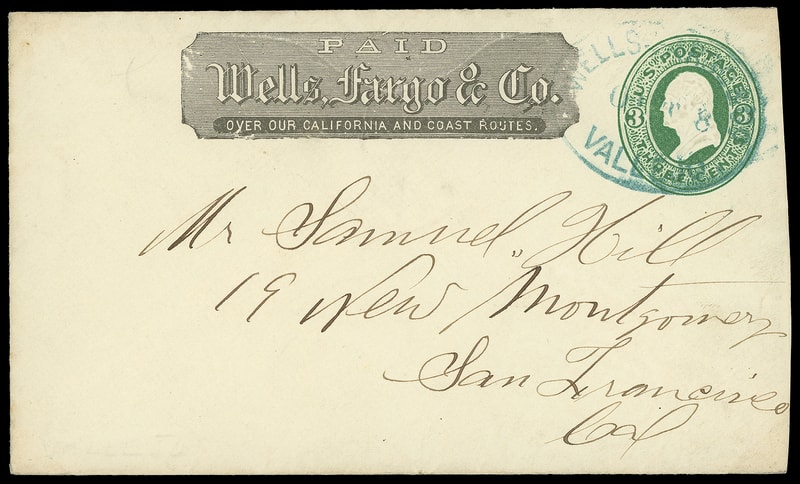 PAID
Wells, Fargo & Co.
OVER OUR CALIFORNIA AND COAST ROUTES.
WELLS,
VALL
8
U.S. POSTAGE
3 3
THREE CENTS
Mr Samuel Hill
19 New Montgomery
San Francisco
Cal